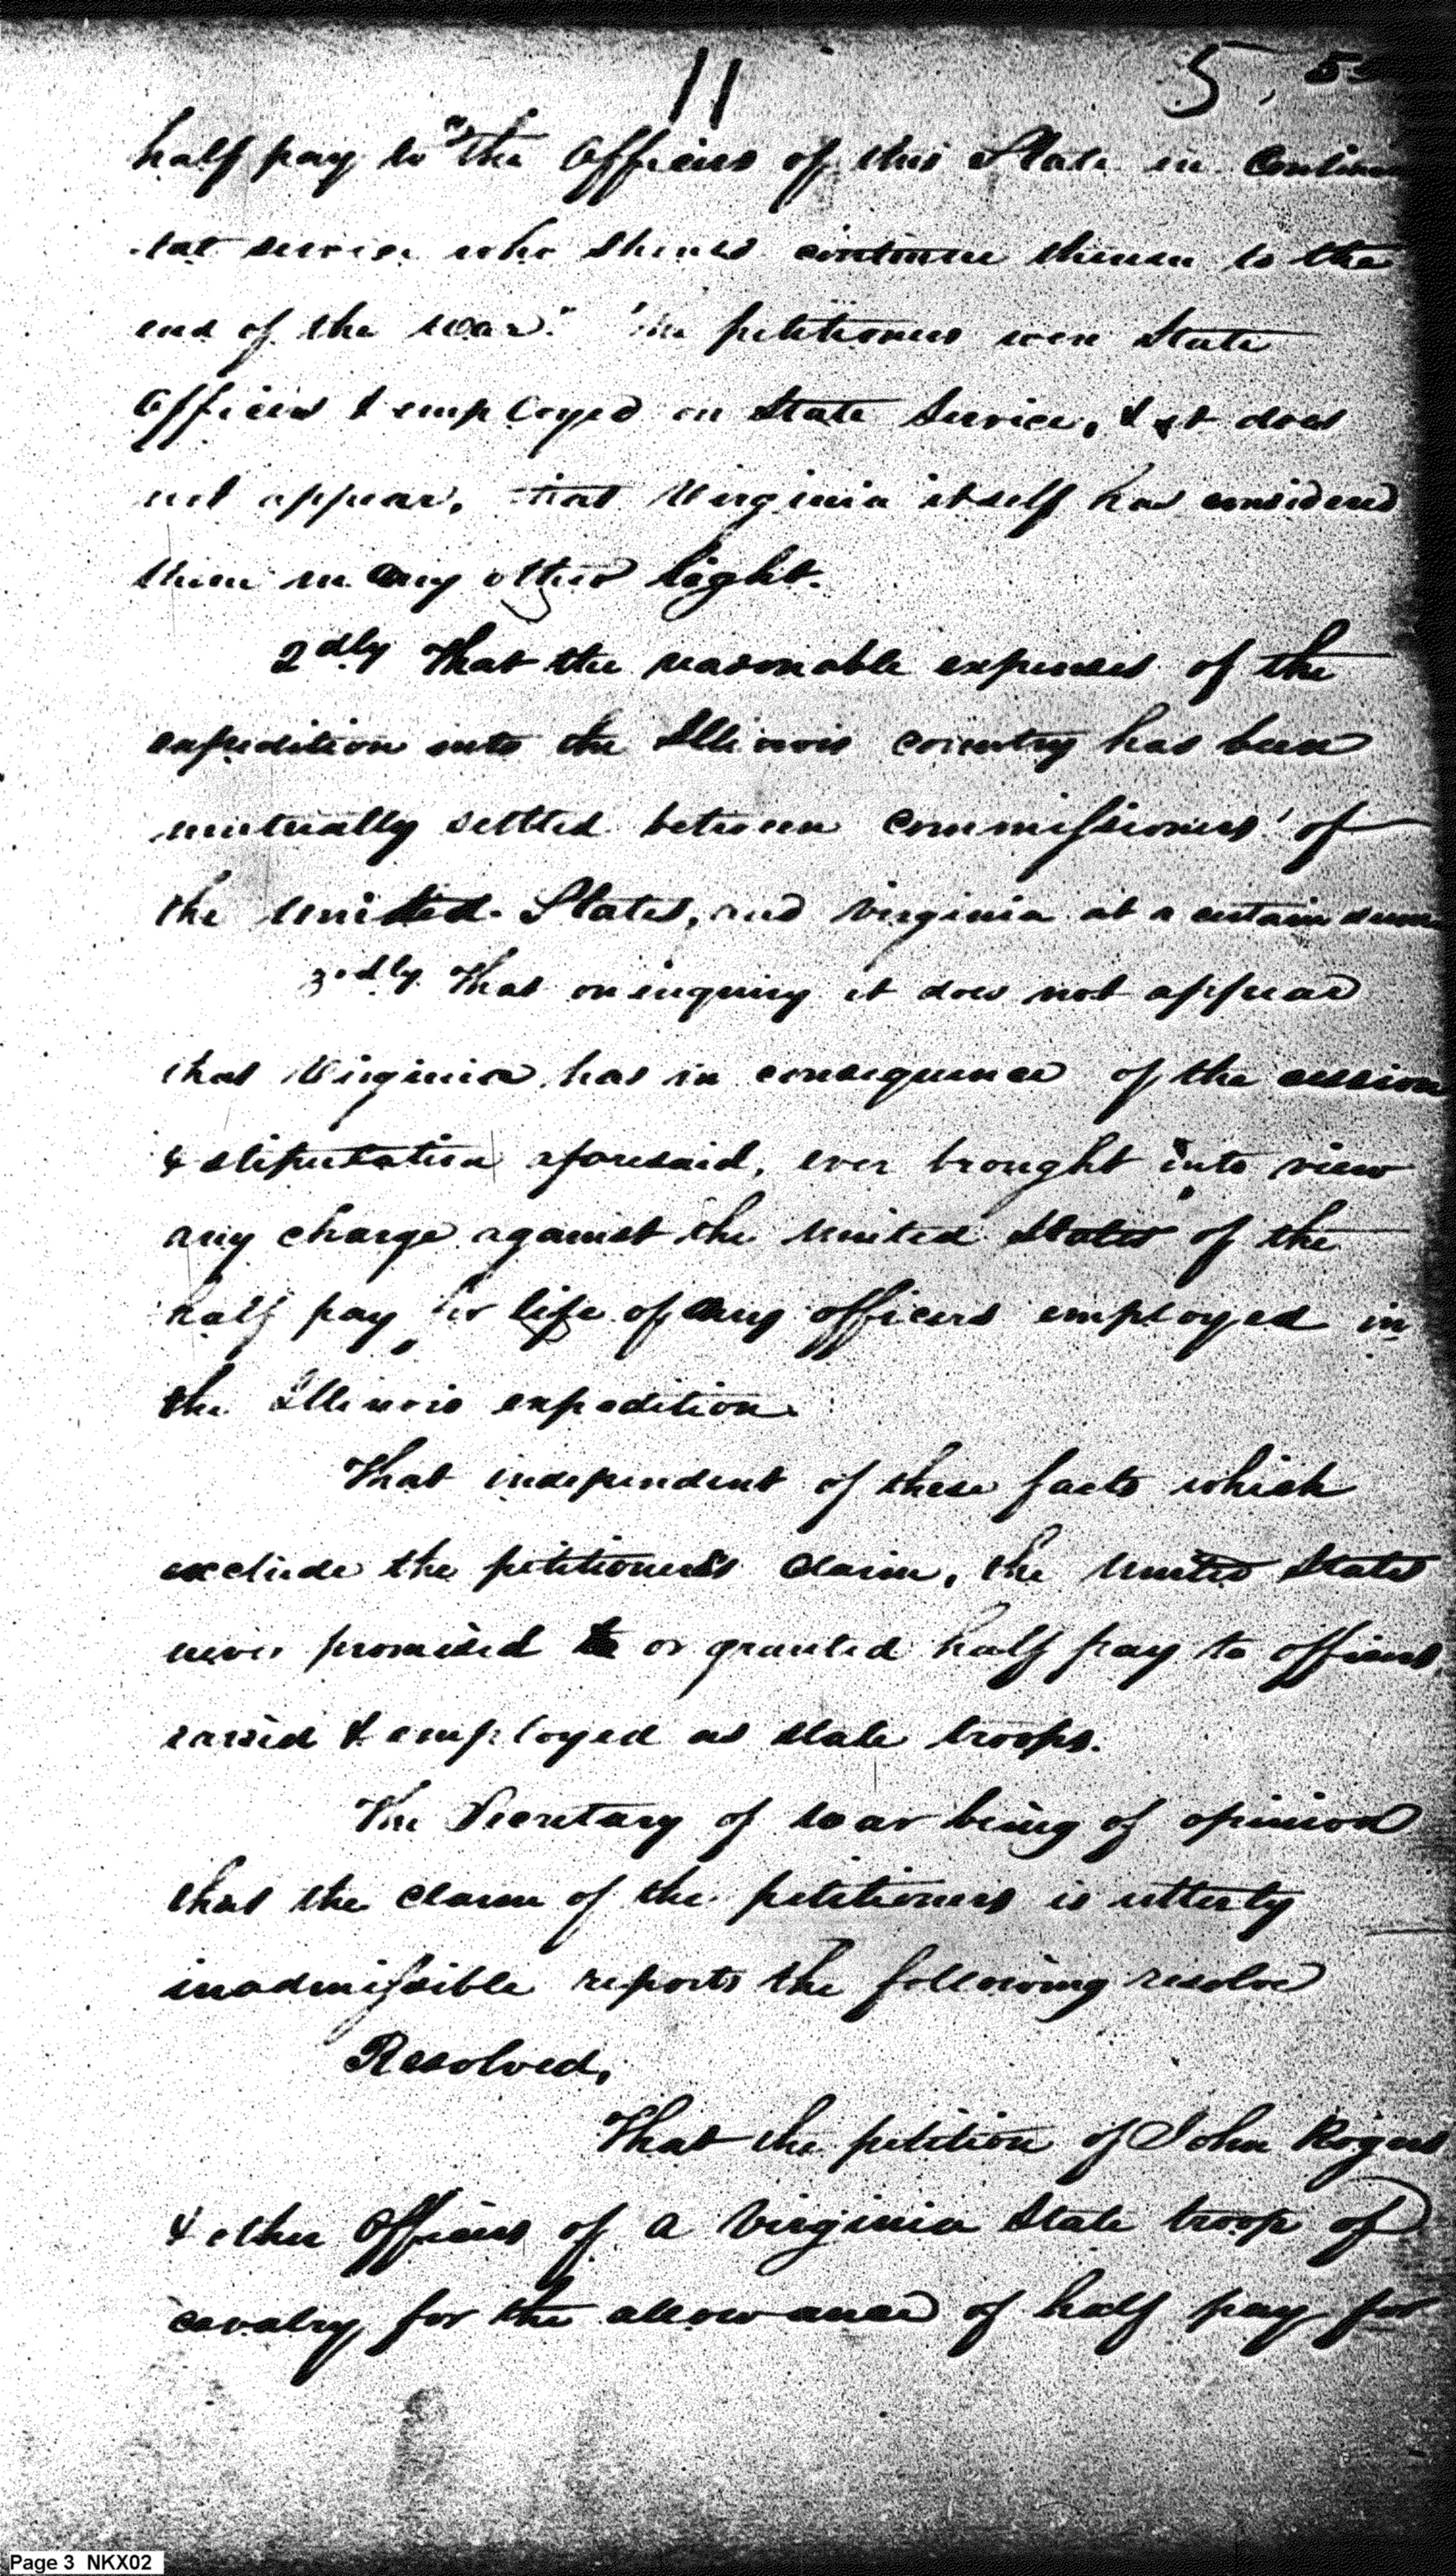 11 5,
half pay to "the Officers of this State in Continen
-tal service who should continue therein to the
end of the war." The petitioners were State
Officers & employed in State Service, & it does
not appear, that Virginia itself has considered
them in any other light.
2dly That the reasonable expenses of the
expedition into the Illinois country has been
mutually settled between commissioners of
the United States, and Virginia at a certain sum
3dly That on inquiry it does not appear
that Virginia has in consequence of the cession
& stipulation aforesaid, ever brought into view
any charge against the United States of the
half pay for life of any officers employed in
the Illinois expedition.
That independent of these facts which
exclude the petitioners claim, the United States
never promised or granted half pay to officers
raised & employed as state troops.
The Secretary of war being of opinion
that the claim of the petitioners is utterly
inadmissible reports the following resolve
Resolved,
That the petition of John Rogers
& other Officers of a Virginia State troop of
cavalry for the allowance of half pay for
Page 3 NKX02